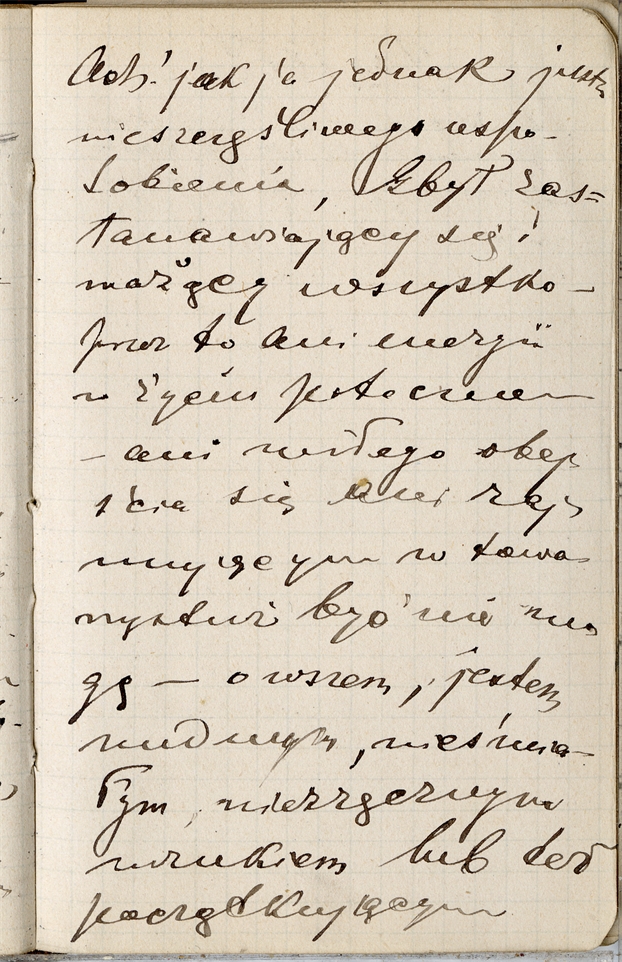 Ach! jak ja jednak jestem
nieszczęśliwego uspo-
sobienia, Zbyt zas=
tanawiający się i
ważący wszystko -
przez to ani energii
w życiu potocznem
- ani miłego obej
ścia się ani zaj
mującym w towa
rzystwie być nie mo
gę - owszem, jestem
nudnym, nieśmia-
łym, niezręcznym
mrukiem lub też